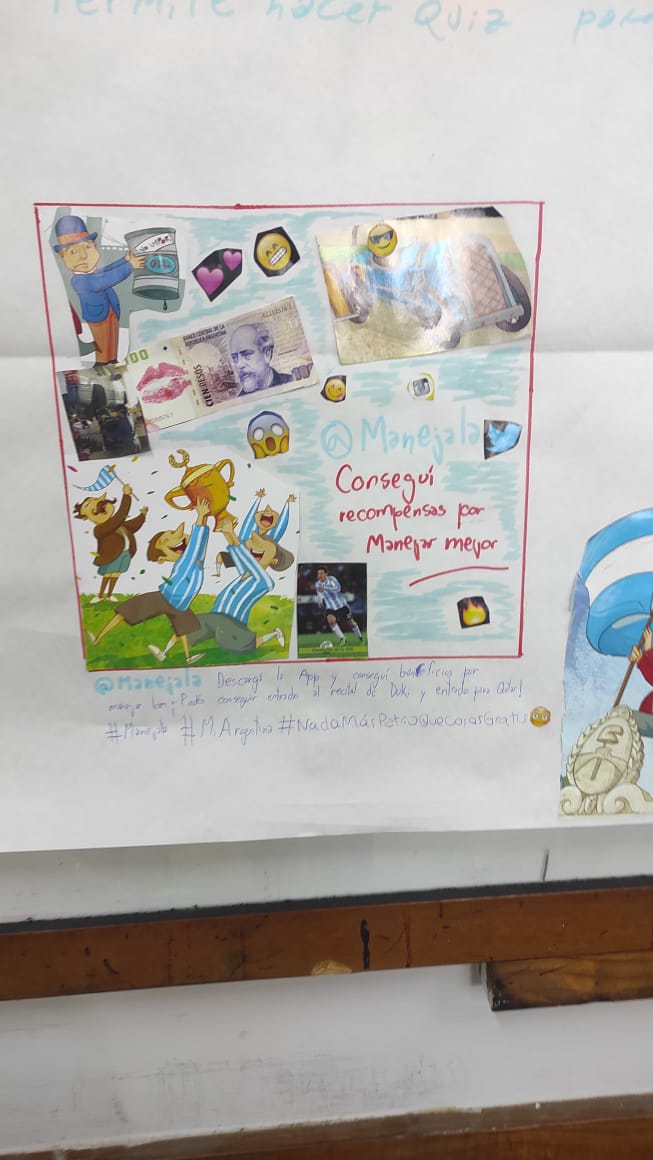 Permite hacer Quiz para
OIL
100
BANCO CENTRAL DE LA
REPUBLICA ARGENTINA
CIEN PESOS
100
@Manejala
Conseguí
recompensas por
Manejar mejor
@Manejala Descarga la App y conseguí beneficios por
manejar bien; Podés conseguir entrada al recital de Duki y entrada para Qatar!
#Manejala #M.Argentina #NadaMásPatrioQueCosasGratis